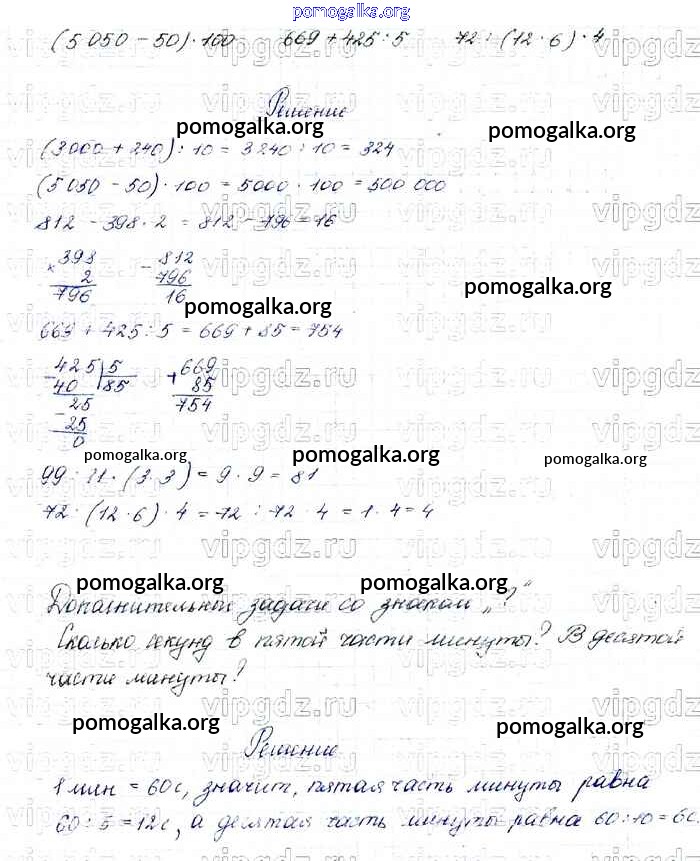 pomogalka.org
(5 050 - 50) · 100 669 + 425 : 5 72 : (12 · 6) · 4
Решение
pomogalka.org pomogalka.org
(3000 + 240) : 10 = 3240 : 10 = 324
(5 050 - 50) · 100 = 5000 · 100 = 500 000
812 - 398 · 2 = 812 - 796 = 16
× 398 - 812
2 796
796 16
pomogalka.org pomogalka.org
669 + 425 : 5 = 669 + 85 = 754
- 425 | 5 + 669
40 85 85
- 25 754
25
0
pomogalka.org pomogalka.org pomogalka.org
99 : 11 · (3 · 3) = 9 · 9 = 81
72 : (12 · 6) · 4 = 72 : 72 · 4 = 1 · 4 = 4
pomogalka.org pomogalka.org
Дополнительной задачи со знаком „?“
Сколько секунд в пятой части минуты? В десятой
части минуты?
pomogalka.org pomogalka.org
Решение
1 мин = 60с, значит, пятая часть минуты равна
60 : 5 = 12с, а десятая часть минуты равна 60 : 10 = 6с.